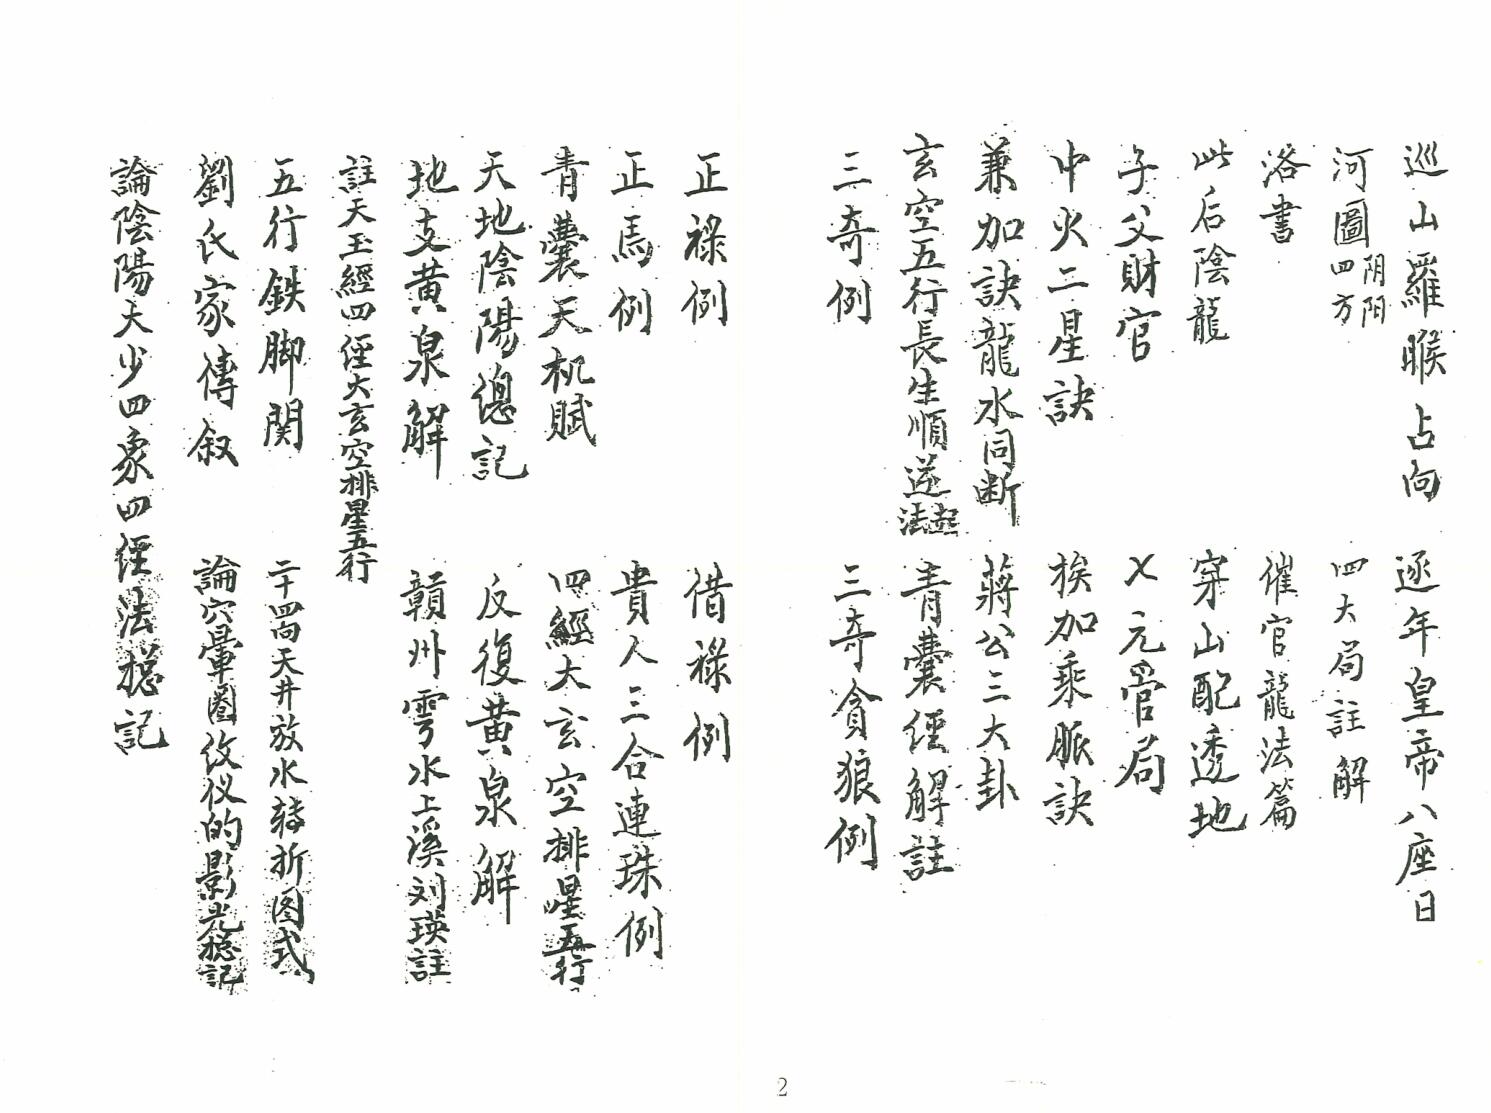 巡山羅睺占向
逐年皇帝八座日
河圖四方阴阳
四大局註解
洛書
催官龍法篇
此后陰龍
穿山配透地
子父財官
乂元管局
中火二星訣
挨加乘脈訣
兼加訣龍水同断
蔣公三大卦
玄空五行長生順逆起法
青囊經解註
三奇例
三奇貪狼例
正祿例
借祿例
正馬例
貴人三合連珠例
青囊天机賦
四經大玄空排星五行
天地陰陽總記
反復黄泉解
地支黄泉解
贛州雩水上溪刘瑛註
註天玉經四經大玄空排星五行
五行鉄脚関
二十四向天井放水转折图式
劉氏家傳叙
論穴暈圈伩仪的影光總記
論陰陽太少四象四經法總記
2